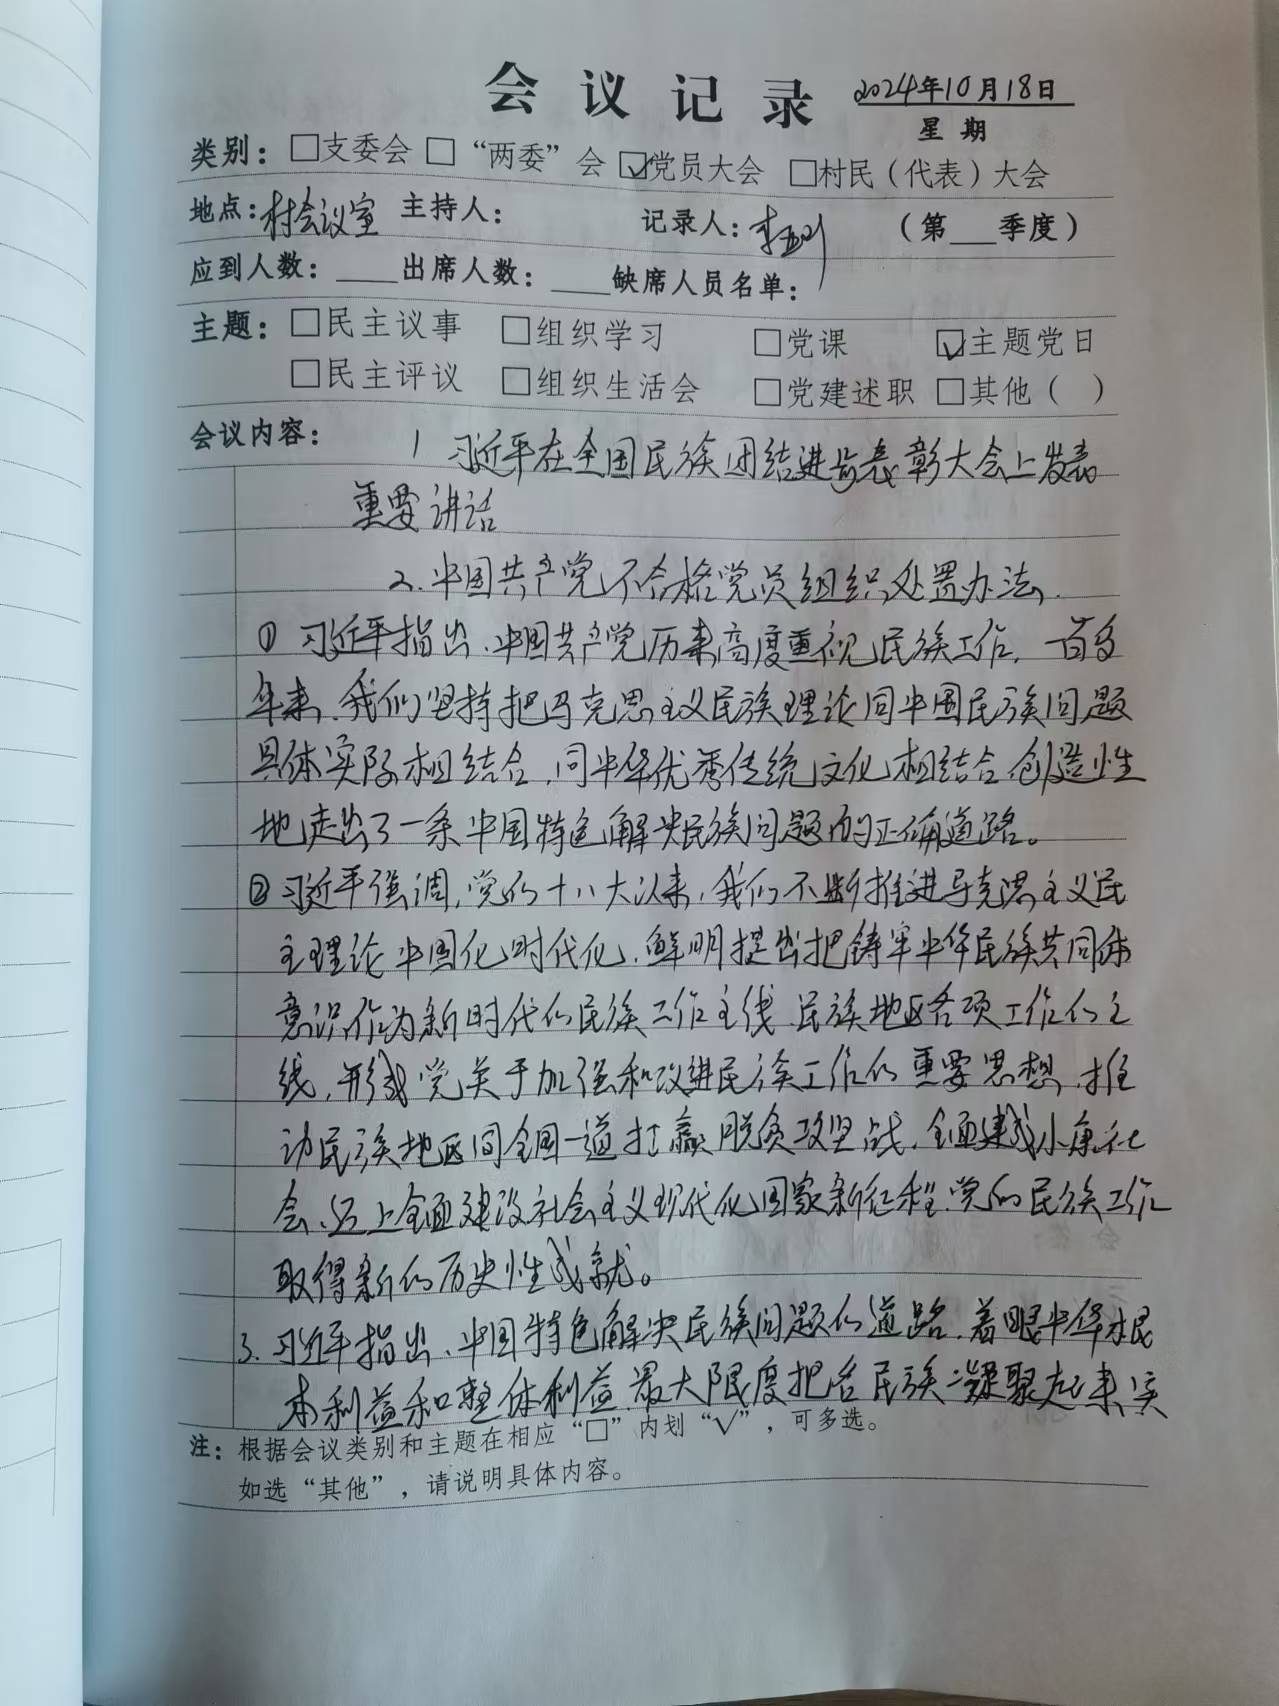 会议记录 2024年10月18日
星期
类别：□支委会 □“两委”会 ☑党员大会 □村民（代表）大会
地点：村会议室 主持人： 记录人：李 （第___季度）
应到人数：____出席人数：____缺席人员名单：
主题：□民主议事 □组织学习 □党课 ☑主题党日
□民主评议 □组织生活会 □党建述职 □其他（ ）
会议内容： 1 习近平在全国民族团结进步表彰大会上发表
重要讲话
2.中国共产党不合格党员组织处置办法.
① 习近平指出、中国共产党历来高度重视民族工作，一百多
年来、我们坚持把马克思主义民族理论同中国民族问题
具体实际相结合，同中华优秀传统文化相结合创造性
地走出了一条中国特色解决民族问题的正确道路。
② 习近平强调，党的十八大以来，我们不断推进马克思主义民
主理论中国化时代化、鲜明提出把铸牢中华民族共同体
意识作为新时代的民族工作主线、民族地区各项工作的主
线，形成党关于加强和改进民族工作的重要思想，推
动民族地区同全国一道打赢脱贫攻坚战，全面建成小康社
会、迈上全面建设社会主义现代化国家新征程.党的民族工作
取得新的历史性成就。
3. 习近平指出、中国特色解决民族问题的道路，着眼中华根
本利益和整体利益 最大限度把各民族凝聚起来，实
注：根据会议类别和主题在相应“□”内划“√”，可多选。
如选“其他”，请说明具体内容。